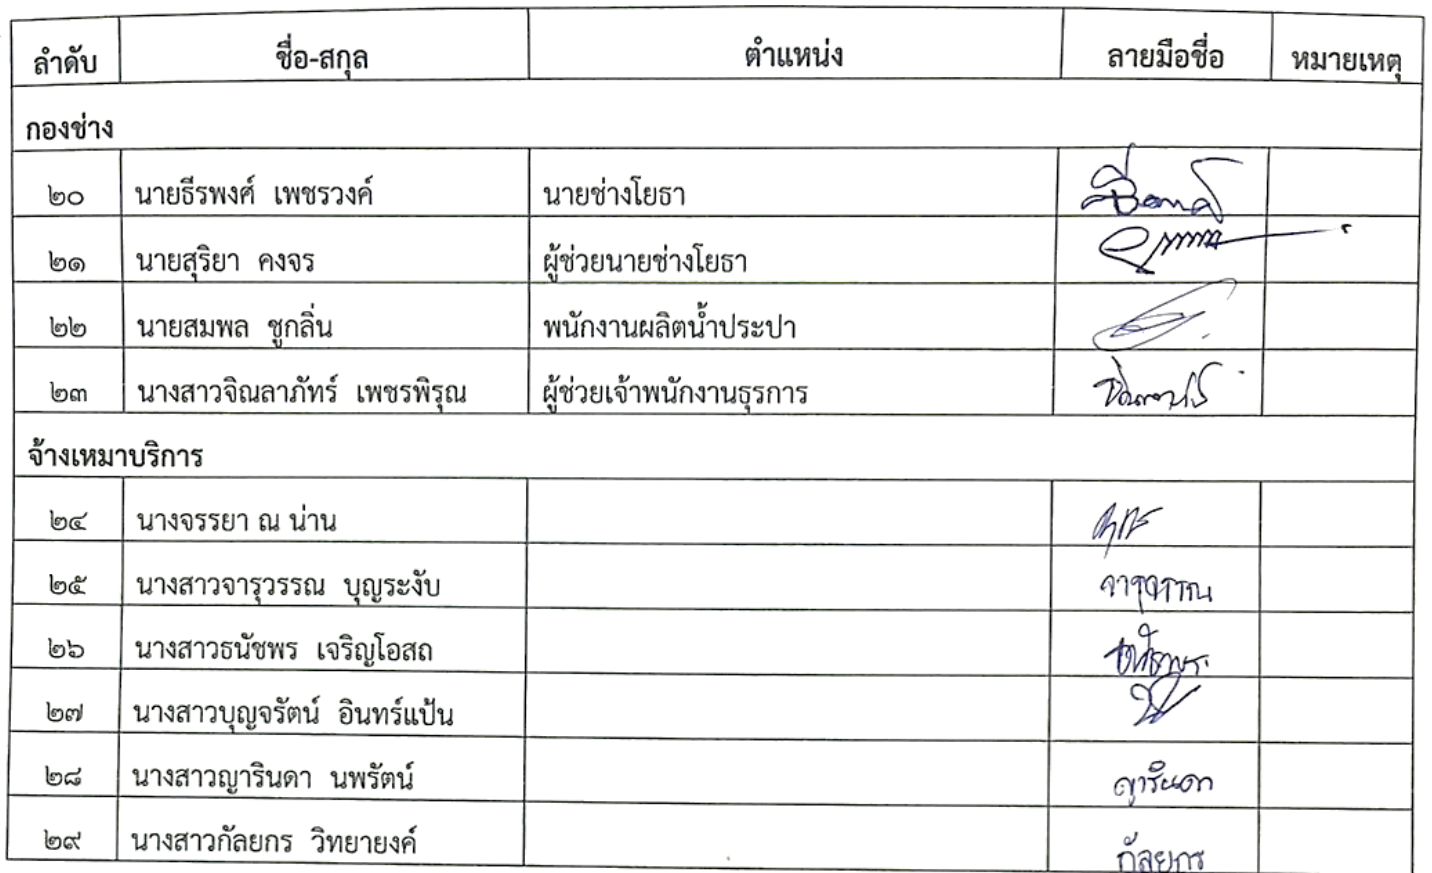 ลำดับ ชื่อ-สกุล ตำแหน่ง ลายมือชื่อ หมายเหตุ
กองช่าง
๒๐ นายธีรพงศ์ เพชรวงค์ นายช่างโยธา
๒๑ นายสุริยา คงจร ผู้ช่วยนายช่างโยธา
๒๒ นายสมพล ชูกลิ่น พนักงานผลิตน้ำประปา
๒๓ นางสาวจิณลาภัทร์ เพชรพิรุณ ผู้ช่วยเจ้าพนักงานธุรการ
จ้างเหมาบริการ
๒๔ นางจรรยา ณ น่าน
๒๕ นางสาวจารุวรรณ บุญระงับ จารุวรรณ
๒๖ นางสาวธนัชพร เจริญโอสถ ธนัชพร
๒๗ นางสาวบุญจรัตน์ อินทร์แป้น
๒๘ นางสาวญารินดา นพรัตน์ ญารินดา
๒๙ นางสาวกัลยกร วิทยายงค์ กัลยกร